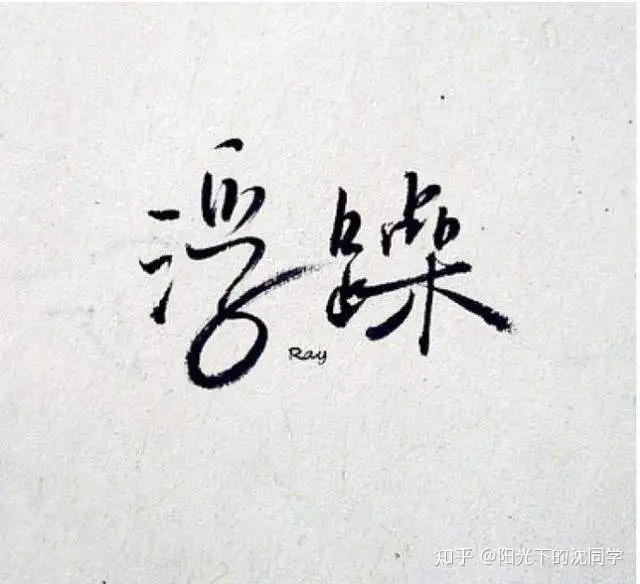 浮躁
Ray
知乎 @阳光下的沈同学